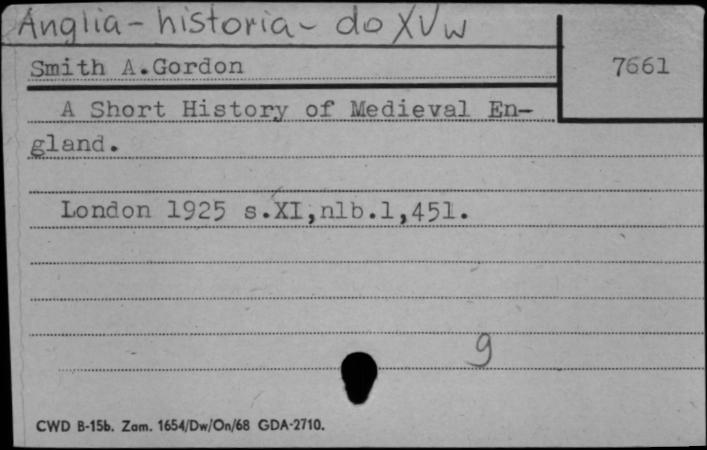 Anglia - historia - do XV w
Smith A.Gordon
7661
A Short History of Medieval En-
gland.
London 1925 s.XI,nlb.1,451.
9
CWD B-15b. Zam. 1654/Dw/On/68 GDA-2710.